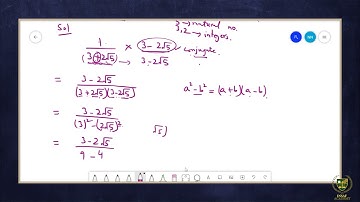 Sol
3 → natural no.
3, 2 → integers.
1/(3+2√5) × 3-2√5/3-2√5 conjugate.
= 3-2√5/(3+2√5)(3-2√5)
a²-b² = (a+b)(a-b)
= 3-2√5/(3)²-(2√5)²
√5)
= 3-2√5/9-4